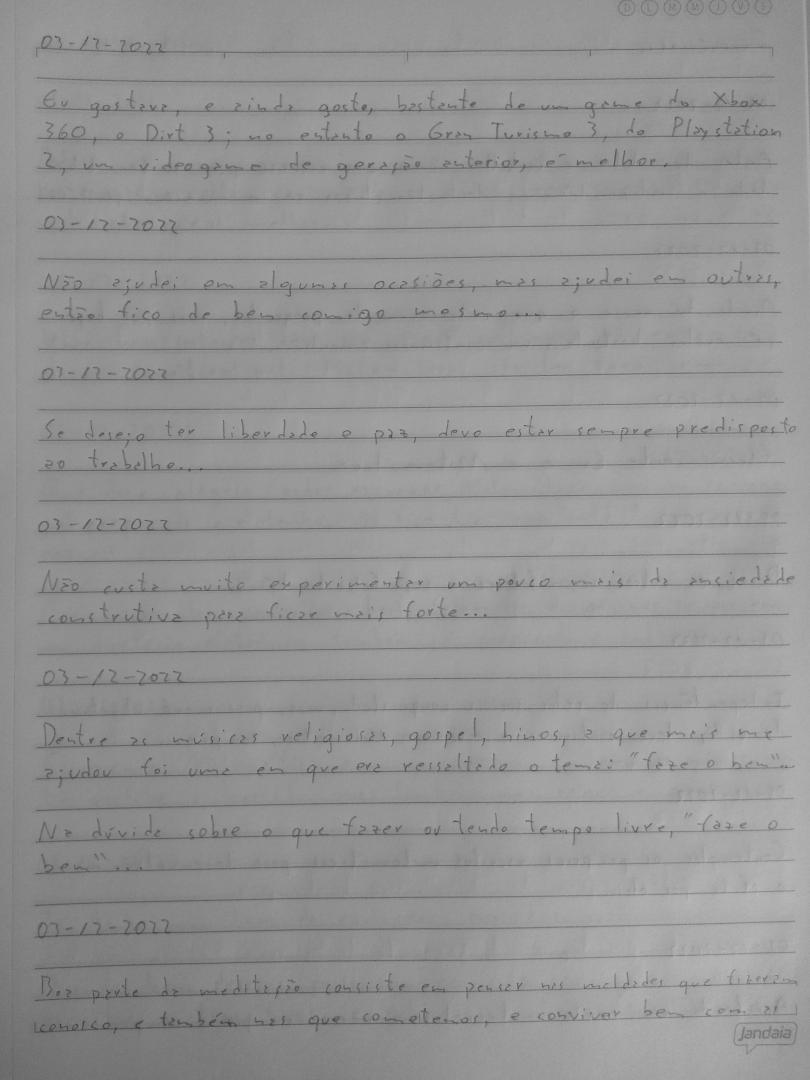 D L M M J V S
03-12-2022
Eu gostava, e ainda gosto, bastante de um game do Xbox
360, o Dirt 3; no entanto o Gran Turismo 3, do Playstation
2, um videogame de geração anterior, é melhor.
03-12-2022
Não ajudei em algumas ocasiões, mas ajudei em outras,
então fico de bem comigo mesmo...
03-12-2022
Se desejo ter liberdade e paz, devo estar sempre predisposto
ao trabalho...
03-12-2022
Não custa muito experimentar um pouco mais da ansiedade
construtiva para ficar mais forte...
03-12-2022
Dentre as músicas religiosas, gospel, hinos, a que mais me
ajudou foi uma em que era ressaltado o tema: "faze o bem"...
Na dúvida sobre o que fazer ou tendo tempo livre, "faze o
bem"...
03-12-2022
Boa parte da meditação consiste em pensar nas maldades que fizeram
conosco, e também nas que cometemos, e conviver bem com
Jandaia